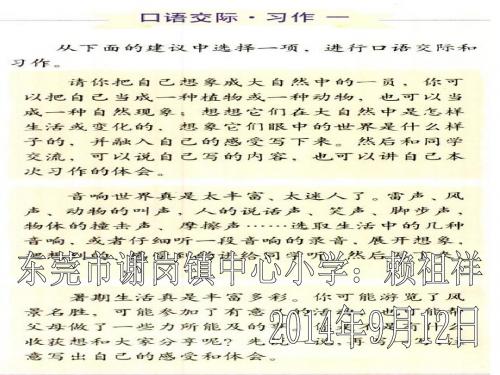 口语交际·习作一
从下面的建议中选择一项，进行口语交际和
习作。
请你把自己想象成大自然中的一员，你可
以把自己当成一种植物或一种动物，也可以当
成一种自然现象；想想它们在大自然中是怎样
生活或变化的，想象它们眼中的世界是什么样
子的，并融入自己的感受写下来。然后和同学
交流，可以说自己写的内容，也可以讲自己本
次习作的体会。
音响世界真是太丰富、太迷人了。雷声、风
声、动物的叫声，人的说话声、笑声、脚步声，
物体的撞击声、摩擦声……选取生活中的几种
音响，或者仔细听一段音响的录音，展开想象，
给同学听，然后
东莞市谢岗镇中心小学：赖祖祥
暑期生活真是丰富多彩。你可能游览了风
景名胜，可能参加了有意
父母做了一些力所能及的
2014年9月12日
收获想和大家分享呢？先
意写出自己的感受和体会。